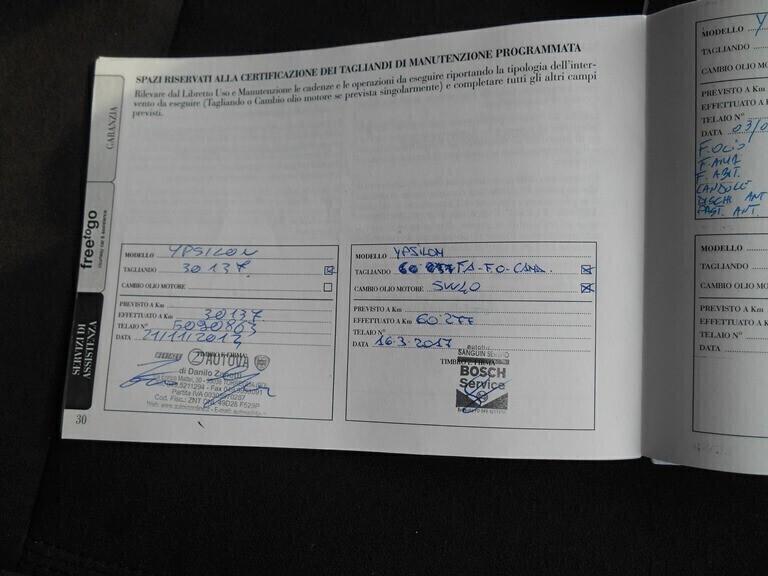 SPAZI RISERVATI ALLA CERTIFICAZIONE DEI TAGLIANDI DI MANUTENZIONE PROGRAMMATA
Rilevare dal Libretto Uso e Manutenzione le cadenze e le operazioni da eseguire riportando la tipologia dell'inter-
vento da eseguire (Tagliando o Cambio olio motore se prevista singolarmente) e completare tutti gli altri campi
previsti.
GARANZIA
freetogo
SERVIZI DI
ASSISTENZA
30
MODELLO YPSILON
TAGLIANDO 30137
CAMBIO OLIO MOTORE
PREVISTO A Km
EFFETTUATO A Km 30137
TELAIO N° 5090863
DATA 21/11/2013
TIMBRO E FIRMA
AUTOVA
di Danilo
Partita IVA
MODELLO YPSILON
TAGLIANDO FA-FO-CAND.
CAMBIO OLIO MOTORE 5W40
PREVISTO A Km
EFFETTUATO A Km 60277
TELAIO N°
DATA 16.3.2017
TIMBRO E FIRMA
BOSCH
Service
MODELLO Y
TAGLIANDO
CAMBIO OLIO MO
PREVISTO A Km
EFFETTUATO A K
TELAIO N°
DATA 03/0
F. OLIO
F. ARIA
F. ABIT.
CANDELE
DISCHI ANT
PAST. ANT.
MODELLO
TAGLIANDO
CAMBIO OLIO M
PREVISTO A Km
EFFETTUATO A K
TELAIO N°
DATA